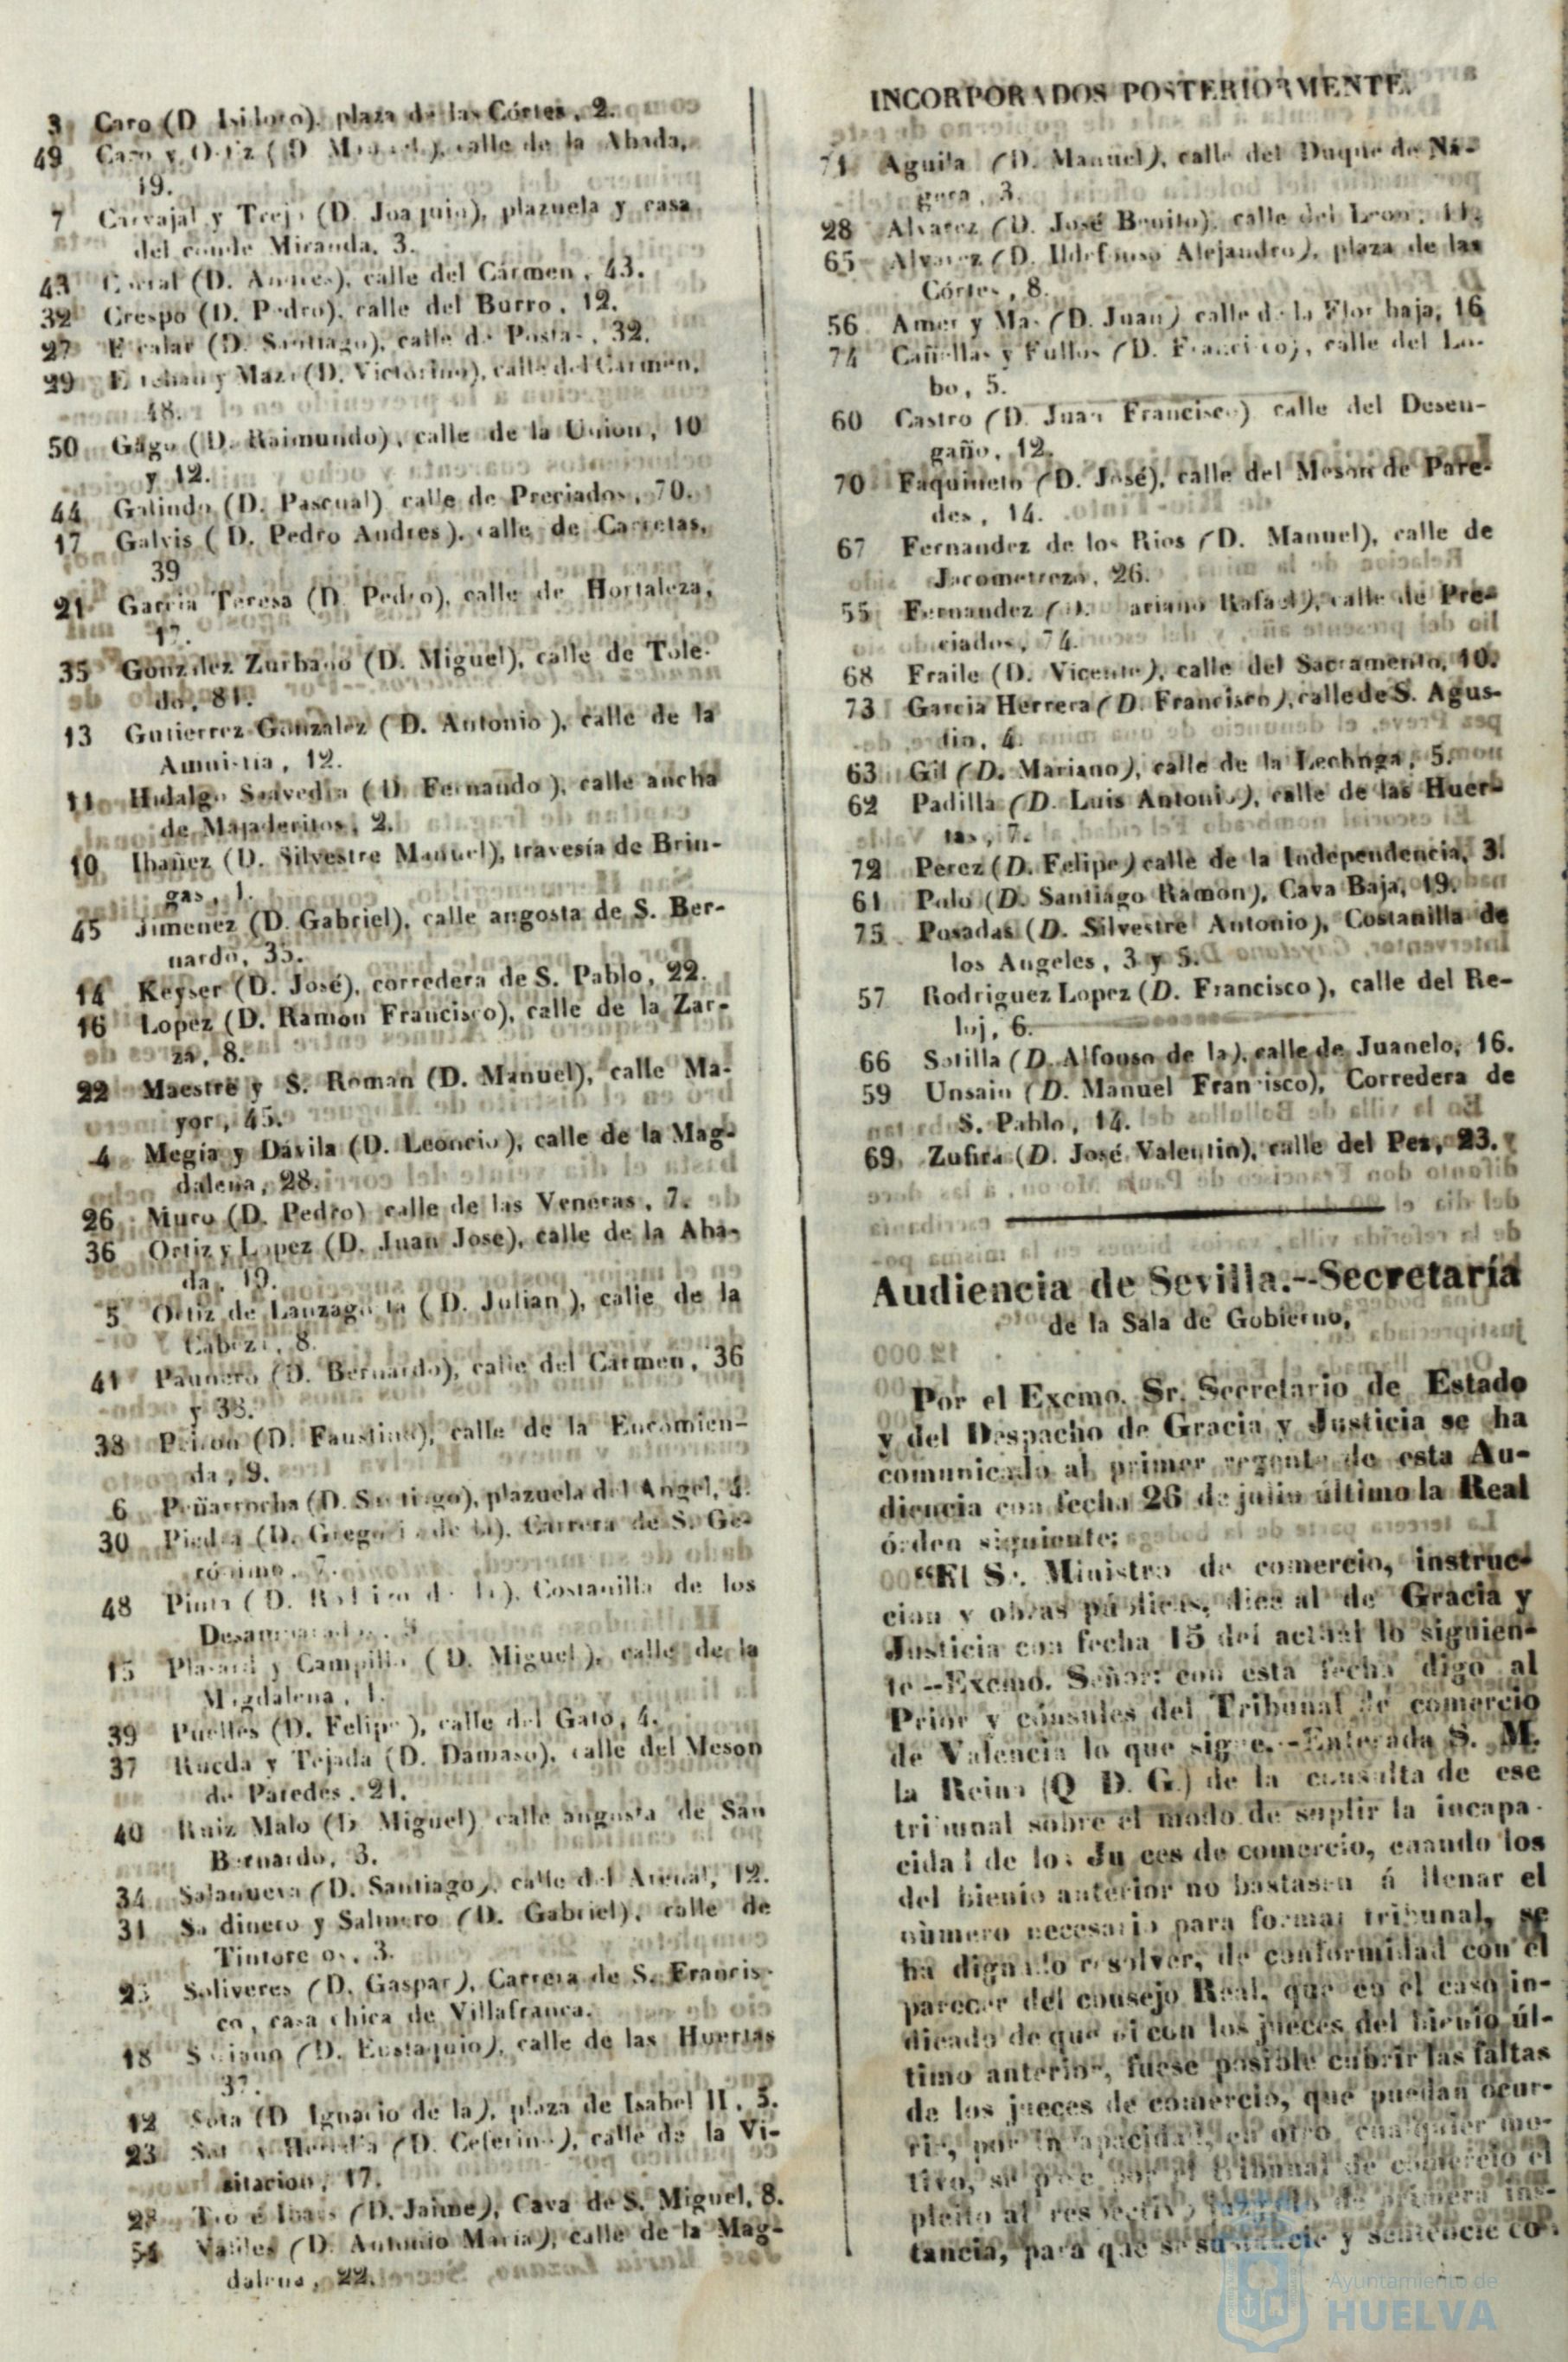 3 Caro (D. Isidoro). plaza de las Córtes, 2.
49 Caro y Ortiz (D. Manuel), calle de la Abada,
19.
7 Carvajal y Trejo (D. Joaquin), plazuela y casa
del conde Miranda, 3.
43 (D. Andres), calle del Cármen, 43.
32 Crespo (D. Pedro), calle del Burro, 12.
27 (D. Santiago), calle de Postas, 32.
29 Esteban y Mazo (D. Victorino), calle del Cármen,
48.
50 Gago (D. Raimundo), calle de la Union, 10
y 12.
44 Galindo (D. Pascual) calle de Preciados, 70.
17 Galvis (D. Pedro Andres), calle de Carretas,
39
21 Garcia Teresa (D. Pedro), calle de Hortaleza,
17.
35 Gonzalez Zurbano (D. Miguel), calle de Tole-
do, 81.
13 Gutierrez Gonzalez (D. Antonio), calle de la
Amnistia, 12.
11 Hidalgo Saavedra (D. Fernando), calle ancha
de Majaderitos, 2.
10 Ibañez (D. Silvestre Manuel), travesía de Brin-
gas, 1.
45 Jimenez (D. Gabriel), calle angosta de S. Ber-
nardo, 35.
14 Keyser (D. José), corredera de S. Pablo, 22.
16 Lopez (D. Ramon Francisco), calle de la Zar-
za, 8.
22 Maestre y S. Roman (D. Manuel), calle Ma-
yor, 45.
4 Megia y Dávila (D. Leoncio), calle de la Mag-
dalena, 28.
26 Muro (D. Pedro) calle de las Veneras, 7.
36 Ortiz y Lopez (D. Juan Jose), calle de la Aba-
da, 19.
5 Ortiz de Lanzagorta (D. Julian), calle de la
Cabeza, 8.
41 (D. Bernardo), calle del Cármen, 36
y 38.
38 (D. Faustino), calle de la Encomien-
da, 9.
6 Peñarrocha (D. Santiago), plazuela del Angel, 4.
30 Piedra (D. Gregorio de la), Carrera de S. Ge-
rónimo, 7.
48 (D. de la), Costanilla de los
Desamparados,
15 y Campillo (D. Miguel), calle de la
Magdalena, 1.
39 Puelles (D. Felipe), calle del Gato, 4.
37 Rueda y Tejada (D. Damaso), calle del Meson
de Paredes, 21.
40 Ruiz Malo (D. Miguel) calle angosta de San
Bernardo, 3.
34 Salanueva (D. Santiago), calle del Arenal, 12.
31 y Salinero (D. Gabriel), calle de
Tintoreros, 3.
Soliveres (D. Gaspar), Carrera de S. Francis-
co, casa chica de Villafranca.
18 (D. Eustaquio), calle de las Huertas
37.
12 Sota (D. Ignacio de la), plaza de Isabel II, 5.
23 (D. Ceferino), calle de la Vi-
sitacion, 17.
(D. Jaime), Cava de S. Miguel, 8.
54 (D. Antonio Maria), calle de la Mag-
dalena, 22.
INCORPORADOS POSTERIORMENTE.
71 Aguila (D. Manuel), calle del Duque de Ná-
gera, 3.
28 Alvarez (D. José Benito), calle del Leon, 11.
65 Alvarez (D. Ildefonso Alejandro), plaza de las
Córtes, 8.
56 Amer y Mas (D. Juan) calle de la Flor baja, 16
74 Cañellas y Fullos (D. Francisco), calle del Lo-
bo, 5.
60 Castro (D. Juan Francisco) calle del Desen-
gaño, 12.
70 Faquineto (D. José), calle del Meson de Pare-
des, 14.
67 Fernandez de los Rios (D. Manuel), calle de
Jacometrezo, 26.
55 Fernandez (D. ariano Rafael), calle de Pre-
ciados, 74.
68 Fraile (D. Vicente), calle del Sacramento, 10.
73 Garcia Herrera (D. Francisco), calle de S. Agus-
tin, 4.
63 Gil (D. Mariano), calle de la Lechuga, 5.
62 Padilla (D. Luis Antonio), calle de las Huer-
tas, 7.
72 Perez (D. Felipe) calle de la Independencia, 3.
61 Polo (D. Santiago Ramon), Cava Baja, 19.
75 Posadas (D. Silvestre Antonio), Costanilla de
los Angeles, 3 y 5.
57 Rodriguez Lopez (D. Francisco), calle del Re-
loj, 6.
66 Sotilla (D. Alfonso de la), calle de Juanelo, 16.
59 Unsain (D. Manuel Francisco), Corredera de
S. Pablo, 14.
69 Zufira (D. José Valentin), calle del Pez, 23.
Audiencia de Sevilla.--Secretaría
de la Sala de Gobierno,
Por el Excmo. Sr. Secretario de Estado
y del Despacho de Gracia y Justicia se ha
comunicado al primer regente de esta Au-
diencia con fecha 26 de julio último la Real
órden siguiente:
"El Sr. Ministro de comercio, instruc-
cion y obras públicas, dice al de Gracia y
Justicia con fecha 15 del actual lo siguien-
te--Excmo. Señor: con esta fecha digo al
Prior y cónsules del Tribunal de comercio
de Valencia lo que sigue.-Enterada S. M.
la Reina (Q D. G.) de la consulta de ese
tribunal sobre el modo de suplir la incapa-
cidad de los Jueces de comercio, cuando los
del bienio anterior no bastasen á llenar el
número necesario para formar tribunal, se
ha dignado resolver, de conformidad con el
parecer del consejo Real, que en el caso in-
dicado de que ni con los jueces del bienio úl-
timo anterior, fuese posible cubrir las faltas
de los jueces de comercio, que puedan ocur-
rir, por incapacidad, ú otro cualquier mo-
tivo, se pase por el tribunal de comercio el
pleito al respectivo juzgado de primera ins-
tancia, para que se sustancie y sentencie co-
Ayuntamiento de
HUELVA